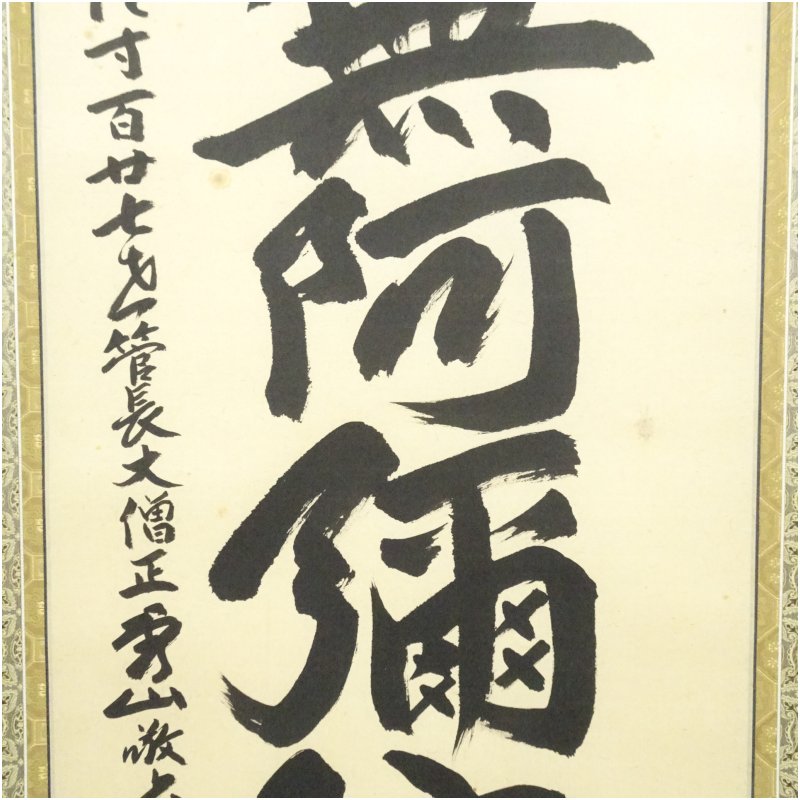 無阿彌
寸百廿七才管長大僧正秀山敬